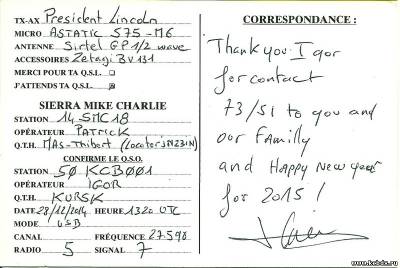 TX-AX President Lincoln
MICRO ASTATIC 575-M6
ANTENNE Sirtel GP 1/2 wave
ACCESSOIRES Zetagi BV131
MERCI POUR TA Q.S.L.
J'ATTENDS TA Q.S.L.
SIERRA MIKE CHARLIE
STATION 14-SMC18
OPÉRATEUR PATRICK
Q.T.H. MAS-Thibert (Locator JN23IN)
CONFIRME LE Q.S.O.
STATION 50 KCB001
OPÉRATEUR IGOR
Q.T.H. KURSK
DATE 28/12/2014 HEURE 1320 UTC
MODE USB
CANAL FRÉQUENCE 27.590
RADIO 5 SIGNAL 7
CORRESPONDANCE :
Thank you Igor
for contact
73/51 to you and
our Familly
and Happy New year
for 2015 !
www.kcbdx.ru